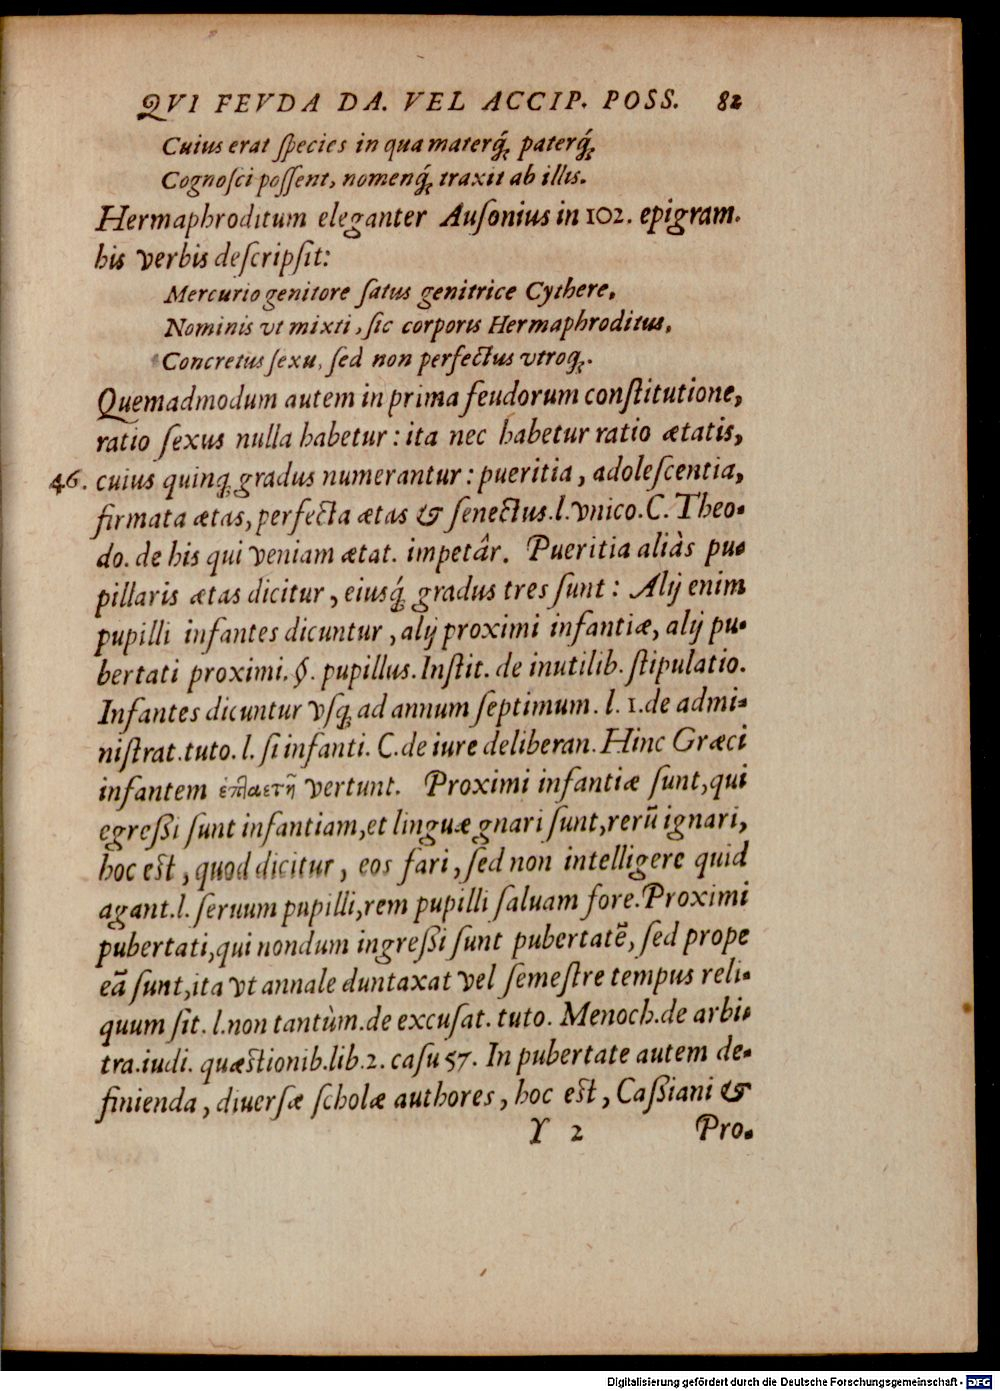 QVI FEVDA DA. VEL ACCIP. POSS. 82
Cuius erat ſpecies in qua materq́; paterq́;
Cognoſci poſſent, nomenq́; traxit ab illis.
Hermaphroditum eleganter Auſonius in 102. epigram.
his verbis deſcripſit:
Mercurio genitore ſatus genitrice Cythere,
Nominis vt mixti, ſic corporis Hermaphroditus,
Concretus ſexu, ſed non perfectus vtroq;.
Quemadmodum autem in prima feudorum conſtitutione,
ratio ſexus nulla habetur: ita nec habetur ratio ætatis,
46. cuius quinq; gradus numerantur: pueritia, adoleſcentia,
firmata ætas, perfecta ætas & ſenectus. l. vnico. C. Theo-
do. de his qui veniam ætat. impetâr. Pueritia aliàs pu-
pillaris ætas dicitur, eiusq́; gradus tres ſunt: Alij enim
pupilli infantes dicuntur, alij proximi infantiæ, alij pu-
bertati proximi. §. pupillus. Inſtit. de inutilib. ſtipulatio.
Infantes dicuntur vſq; ad annum ſeptimum. l. 1. de admi-
niſtrat. tuto. l. ſi infanti. C. de iure deliberan. Hinc Græci
infantem ἑπταετῆ vertunt. Proximi infantiæ ſunt, qui
egreßi ſunt infantiam, et linguæ gnari ſunt, rerū ignari,
hoc est, quod dicitur, eos fari, ſed non intelligere quid
agant. l. ſeruum pupilli, rem pupilli ſaluam fore. Proximi
pubertati, qui nondum ingreßi ſunt pubertatē, ſed prope
eā ſunt, ita vt annale duntaxat vel ſemeſtre tempus reli-
quum ſit. l. non tantùm. de excuſat. tuto. Menoch. de arbi-
tra. iudi. quæstionib. lib. 2. caſu 57. In pubertate autem de-
finienda, diuerſæ ſcholæ authores, hoc est, Caßiani &
Y 2 Pro-
Digitalisierung gefördert durch die Deutsche Forschungsgemeinschaft - DFG